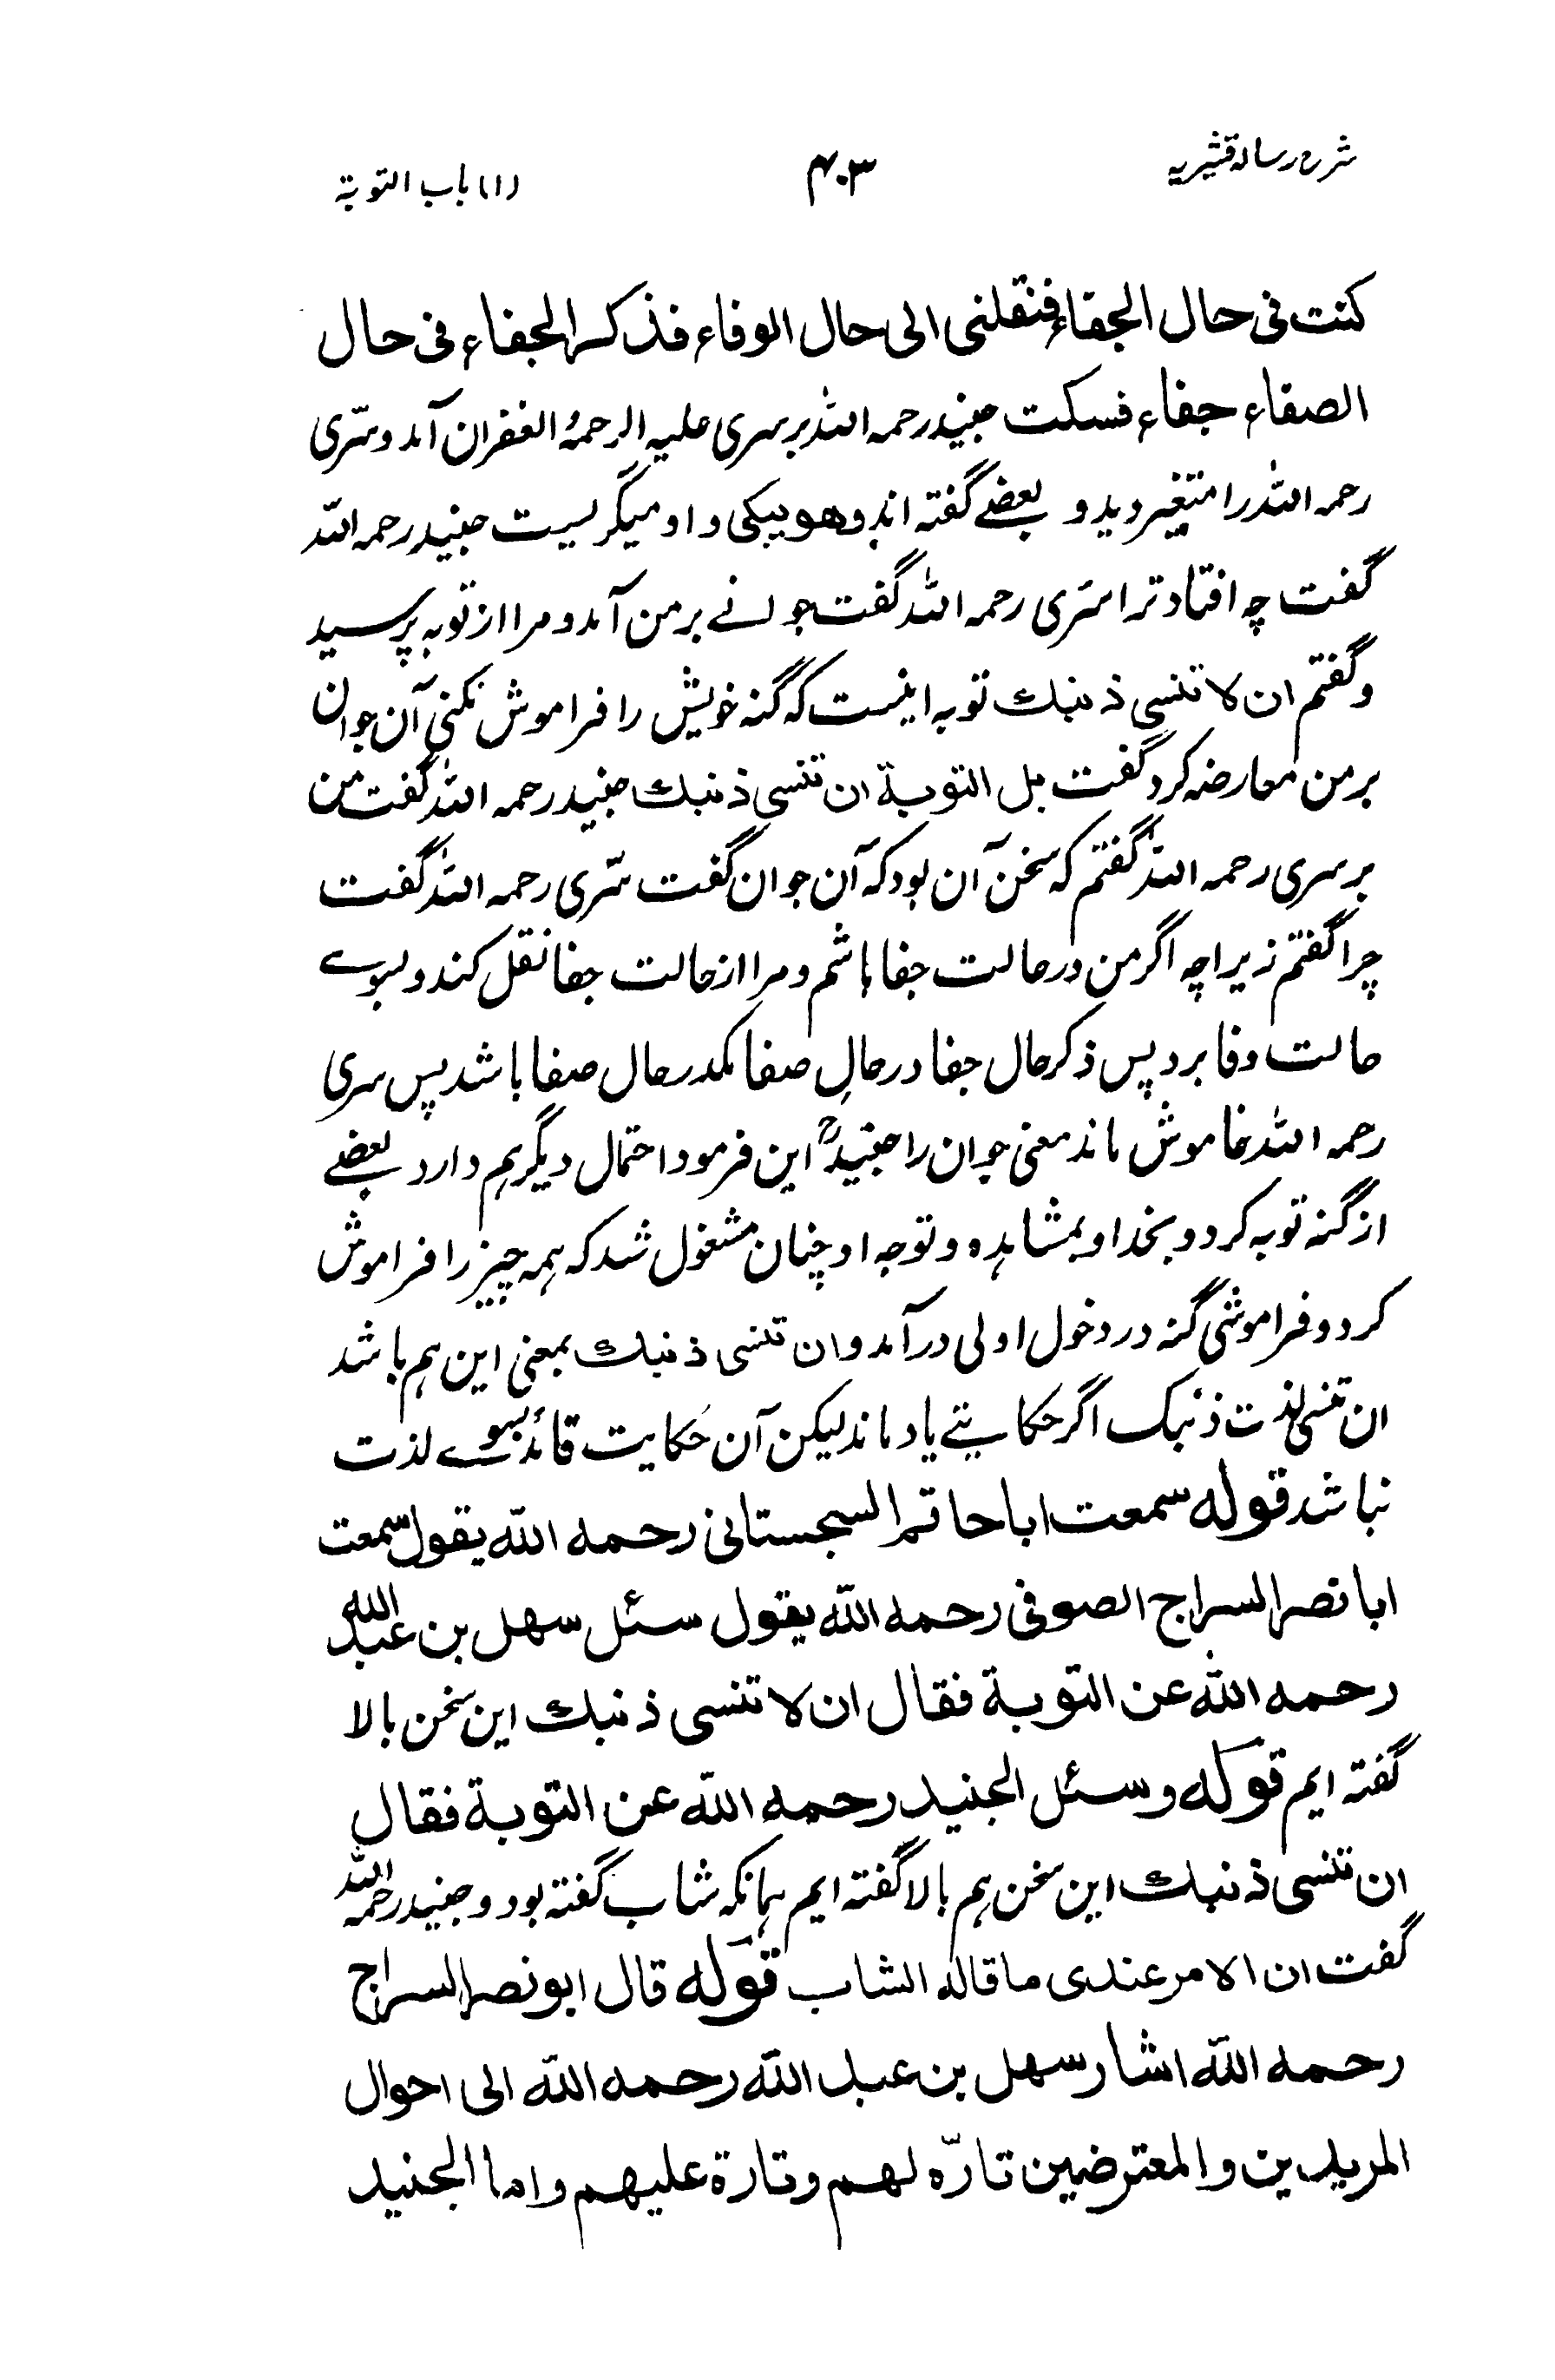 شرح رسالہ قشیریہ
۴۰۳
(۱) باب التوبۃ
کنت فی حال الجفاء فنقلنی الی حال الوفاء فذکر الجفاء فی حال
الصفاء جفاء فسکت جنید رحمہ اللہ بر سری علیہ الرحمۃ الغفران آمد و سری
رحمہ اللہ را متغیر دید و بعضے گفتہ اند وھو یبکی و او میگریست جنید رحمہ اللہ
گفت چہ افتاد ترا سری رحمہ اللہ گفت جوانے بر من آمد و مرا از توبہ پرسید
و گفتم ان لا تنسی ذنبک توبہ اینست کہ گنہ خویش را فراموش نکنی آن جوان
بر من معارضہ کرد گفت بل التوبۃ ان تنسی ذنبک جنید رحمہ اللہ گفت من
بر سری رحمہ اللہ گفتم کہ سخن آن بود کہ آن جوان گفت سری رحمہ اللہ گفت
چرا گفتم زیراچہ اگر من در حالت جفا باشم و مرا از حالت جفا نقل کند و بسوے
حالت وفا برد پس ذکر حال جفا در حالِ صفا مکدر حال صفا باشد پس سری
رحمہ اللہ خاموش ماند معنی جوان را جنیدؒ این فرمود احتمال دیگر ہم دارد بعضے
از گنہ توبہ کرد و بخدا و بمشاہدہ و توجہ او چنان مشغول شد کہ ہمہ چیز را فراموش
کرد و فراموشی گنہ در دخول اولی درآمد و ان تنسی ذنبک بمعنی این ہم باشد
ان تنسی لذت ذنبک اگر حکایتے یاد ماند لیکن آن حکایت قائد بسوے لذت
نباشد قولہ سمعت ابا حاتم السجستانی رحمہ اللہ یقول سمعت
ابا نصر السراج الصوفی رحمہ اللہ یقول سئل سهل بن عبد اللہ
رحمہ اللہ عن التوبۃ فقال ان لا تنسی ذنبک این سخن بالا
گفتہ ایم قولہ و سئل الجنید رحمہ اللہ عن التوبۃ فقال
ان تنسی ذنبک این سخن ہم بالا گفتہ ایم ہمانکہ شاب گفتہ بود و جنید رحمہ اللہ
گفت ان الامر عندی ما قالہ الشاب قولہ قال ابو نصر السراج
رحمہ اللہ اشار سهل بن عبد اللہ رحمہ اللہ الی احوال
المریدین و المعترضین تارّہ لهم و تارۃ علیهم و اما الجنید